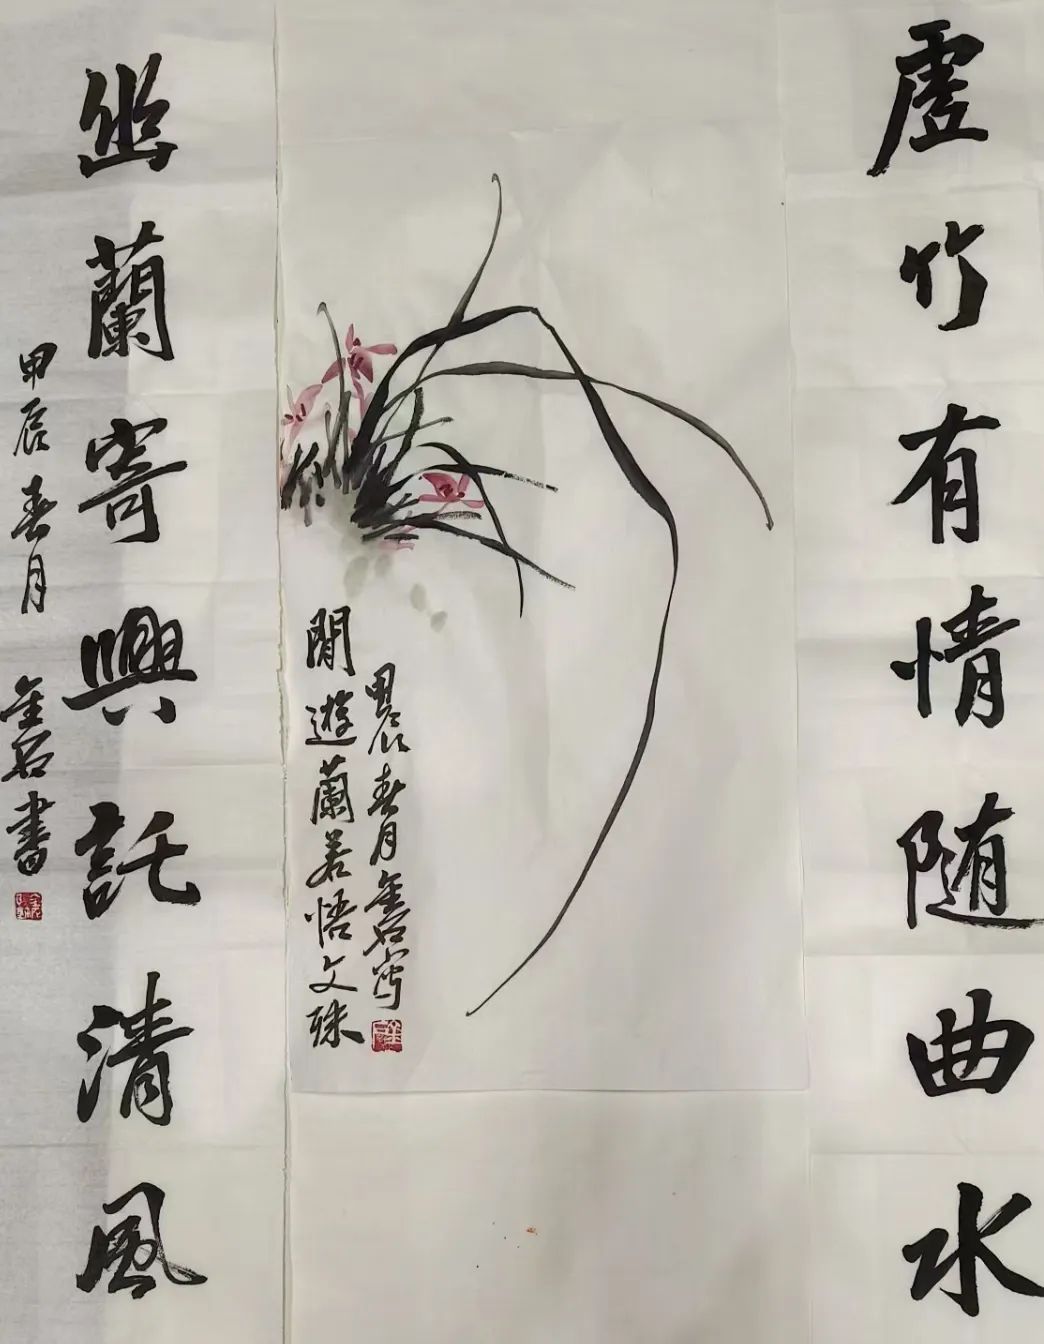 虚竹有情随曲水
幽蘭寄興託清風
甲辰春月
金石書
閒遊蘭若悟文殊
甲辰春月金石寫